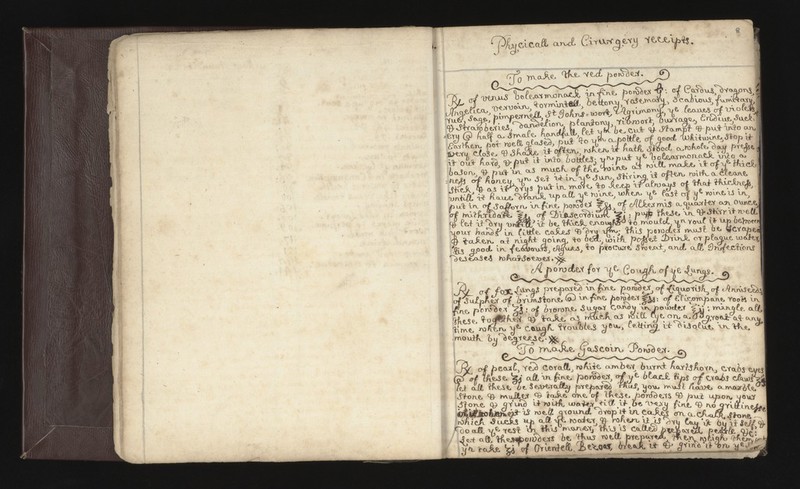 8
Phycicall and Cirurgery receipts.
To make the red powder.
℞ of venus bolearmonack in fine powder of Cardus, dragons,
Angelica, vervain, tormintell, bettony, rosemary, Scabious, fumitary,
rue, sage, pimpernell, St Johns-wort, Egrimony, ye leaves of violets
& Straberies, dandelion, plantony, ribwort, burrage, Endive, suck-
ery a half a smale handfull, let ym be cut & stampt & put into an
Earthen pot well glased, put to ym a pottle of good whitwine, stop it
very close & shake it often, when it hath stood a whole day presse
it out hard, & put it into bottles; yn put ye bolearmonack into a
bason, & put in as much of the wine as will make it of ye thick-
ness of honey, yn set it in ye sun, stiring it often with a cleane
stick, & as it drys put in more to keep it always of that thickness,
untill it have drank up all ye wine, when ye last of ye wine is in,
put in of safforn in fine powder of Alkermis a quarter an ounce,
of mithridate of Diascordium these in & stir it well
& let it dry untill it be thick enough to mould, yn roul it up between
your hands in little cakes & dry ym; this powder must be scraped
& taken at night going to bed, with posset Drink or plague water,
tis good in feavours, Agues, to procure sweat, and all Infectious
deseases whatsoever.
A powder for ye Cough of ye Lungs.
℞ of fox lungs prepared in fine powder, of liquorish, of Anniseeds
of sulpher of brimstone in fine powder of Elicompane root in
fine powder of browne sugar candy in powder mingle all
these together & take as much as will lye on a groat at any
time when ye cough troubles you, letting it disolve in the
mouth by degrese.
To make Gascoin Powder.
℞ of pearl, red corall, white amber burnt hartshorn, crabs eyes
of these all in fine powder, of ye black tips of crabs claws
let all these be severally prepared thus, you must have a marble
stone & muller & take one of these powders & put upon your
stone & grind it with water till it be very fine & no grittinesse
when it is well ground drop it in cakes on a chalk stone
which sucks up all ye water, & when it is dry lay it by it self, &
do all ye rest in this maner, this is called prepared pearle &c:
let all the powders be thus well prepared, then weigh them
yn take of Orientell Bezoar, break it & grind it on ye